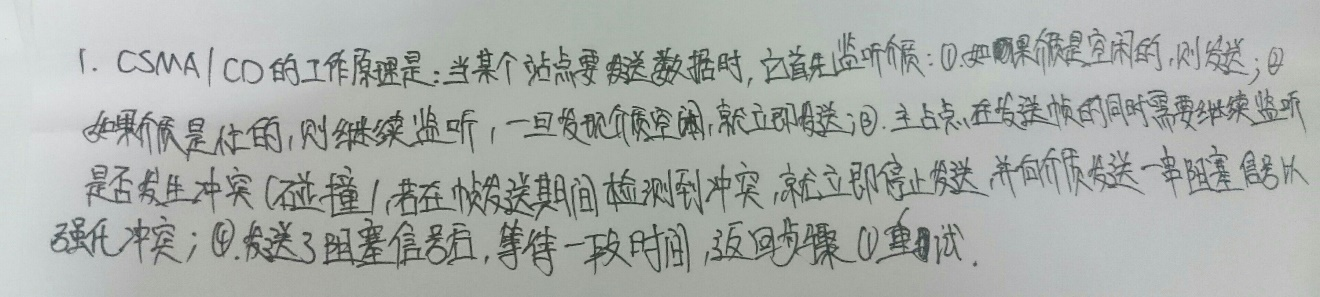 1. CSMA/CD的工作原理是:当某个站点要发送数据时,它首先监听介质:①.如果介质是空闲的,则发送;②
如果介质是忙的,则继续监听,一旦发现介质空闲,就立即发送;③.站点在发送帧的同时需要继续监听
是否发生冲突(碰撞),若在帧发送期间检测到冲突,就立即停止发送,并向介质发送一串阻塞信号以
强化冲突;④.发送了阻塞信号后,等待一段时间,返回步骤①重试.